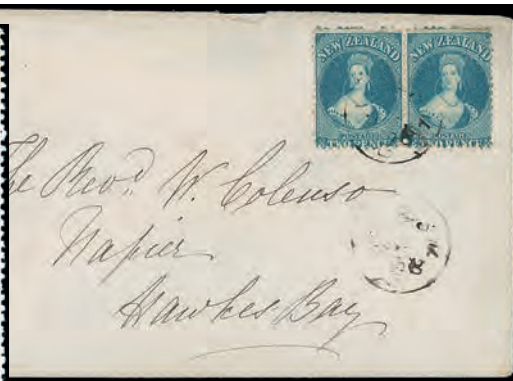 NEW ZEALAND NEW ZEALAND
POSTAGE POSTAGE
TWO PENCE TWO PENCE
The Revd. W. Colenso
Napier
Hawkes Bay